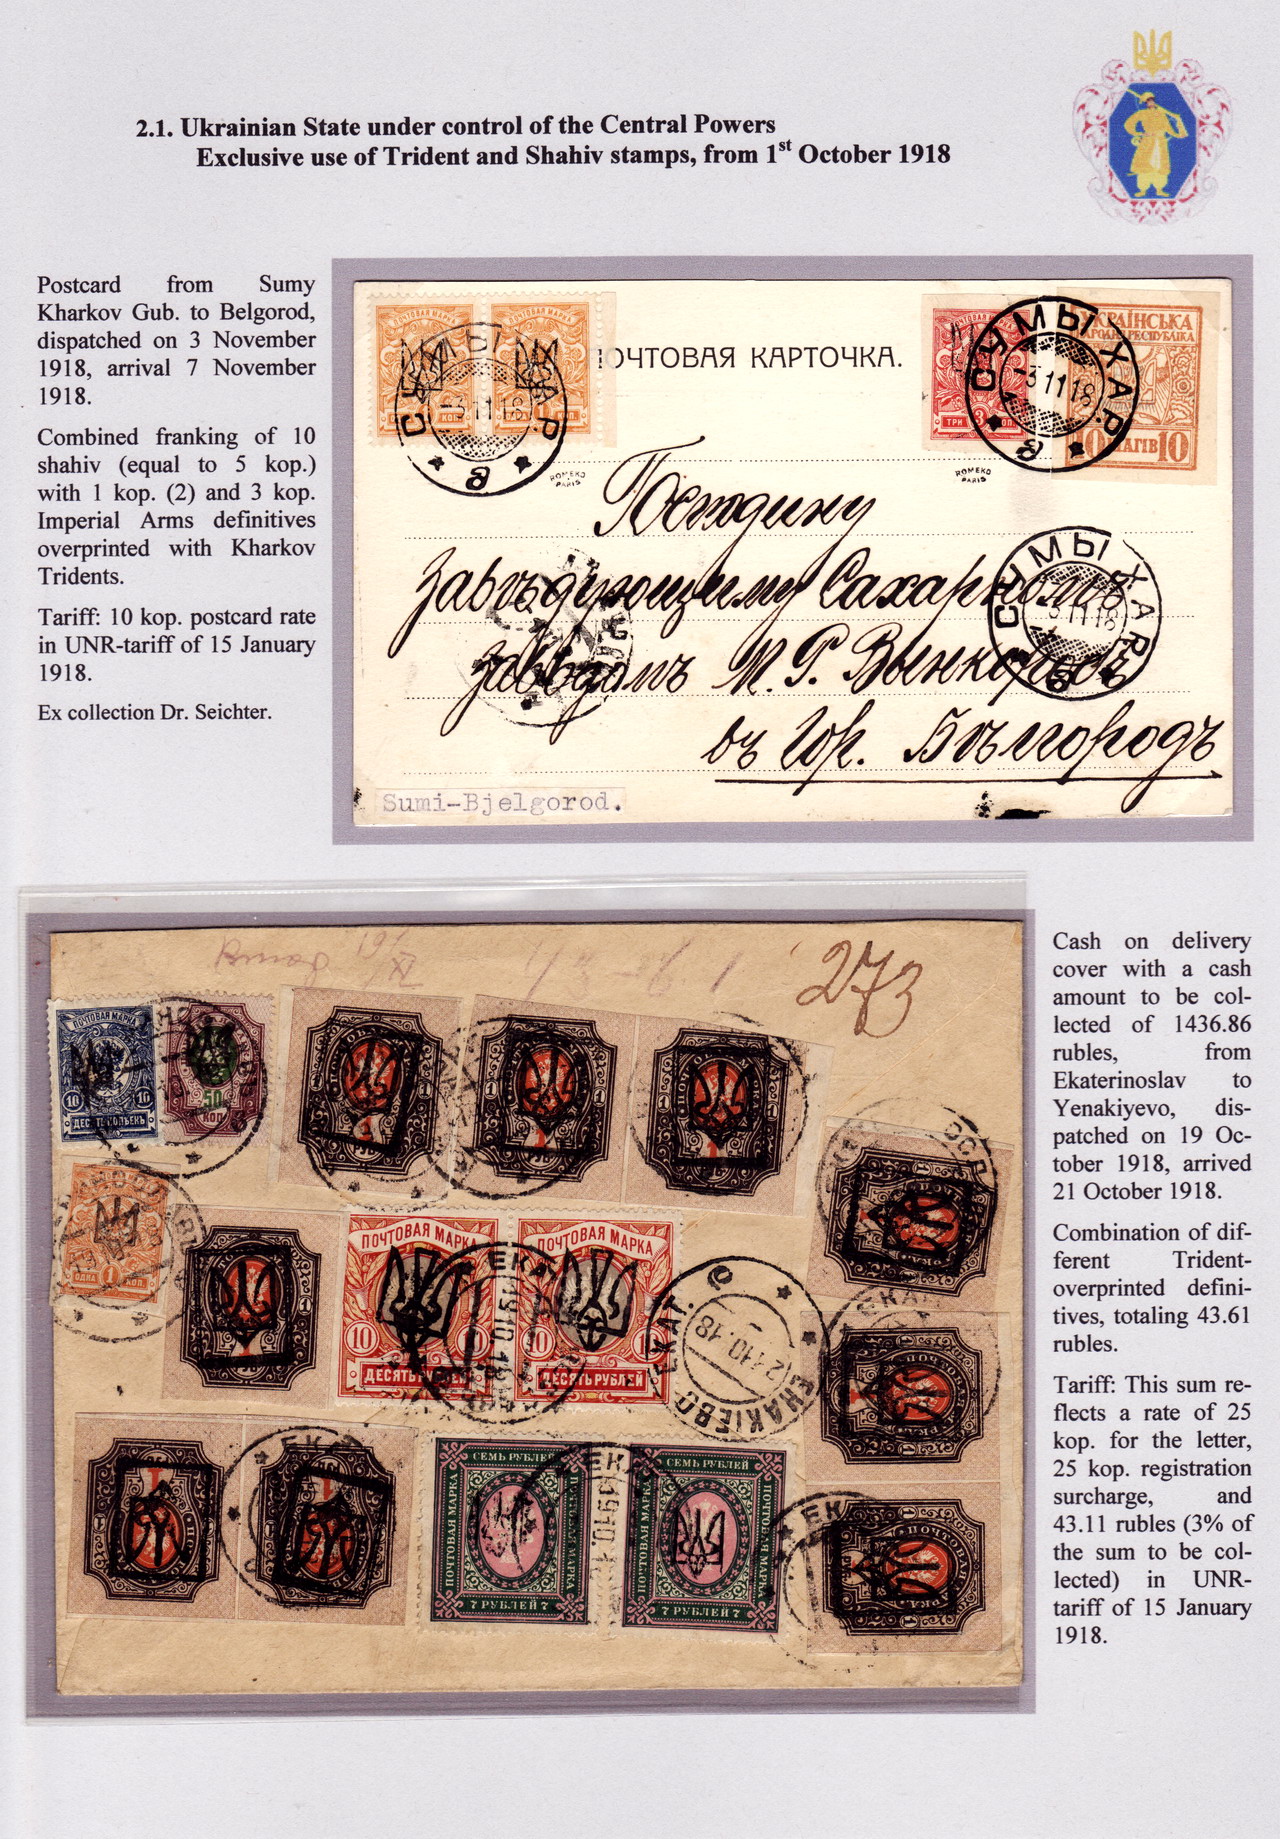 2.1. Ukrainian State under control of the Central Powers
Exclusive use of Trident and Shahiv stamps, from 1st October 1918
Postcard from Sumy
Kharkov Gub. to Belgorod,
dispatched on 3 November
1918, arrival 7 November
1918.
Combined franking of 10
shahiv (equal to 5 kop.)
with 1 kop. (2) and 3 kop.
Imperial Arms definitives
overprinted with Kharkov
Tridents.
Tariff: 10 kop. postcard rate
in UNR-tariff of 15 January
1918.
Ex collection Dr. Seichter.
ПОЧТОВАЯ КАРТОЧКА.
ПОЧТОВАЯ МАРКА
ТРИ 3 КОП.
УКРАЇНСЬКА
НАРОДНЯ РЕСПУБЛІКА
10 ШАГІВ 10
СУМЫ ХАР.
-3 11 18
СУМЫ ХАР.
-3 11 18
СУМЫ ХАР.
-3 11 18
ROMEKO
PARIS
ROMEKO
PARIS
Господину
Завѣдующему Сахарнымъ
заводомъ М. Г.
въ гор. Бѣлгородъ
Sumi-Bjelgorod.
273
ПОЧТОВАЯ МАРКА
10 10
ДЕСЯТЬ КОПѢЕКЪ
50
КОП
ОДНА 1 КОП.
ПОЧТОВАЯ МАРКА
10
ДЕСЯТЬ РУБЛЕЙ
ПОЧТОВАЯ МАРКА
10
ДЕСЯТЬ РУБЛЕЙ
ЕНАКІЕВО ЕКАТ.
21.10.18
СЕМЬ РУБЛЕЙ
ПОЧТОВАЯ МАРКА
7 РУБЛЕЙ 7
СЕМЬ РУБЛЕЙ
ПОЧТОВАЯ МАРКА
7 РУБЛЕЙ 7
Cash on delivery
cover with a cash
amount to be col-
lected of 1436.86
rubles, from
Ekaterinoslav to
Yenakiyevo, dis-
patched on 19 Oc-
tober 1918, arrived
21 October 1918.
Combination of dif-
ferent Trident-
overprinted defini-
tives, totaling 43.61
rubles.
Tariff: This sum re-
flects a rate of 25
kop. for the letter,
25 kop. registration
surcharge, and
43.11 rubles (3% of
the sum to be col-
lected) in UNR-
tariff of 15 January
1918.